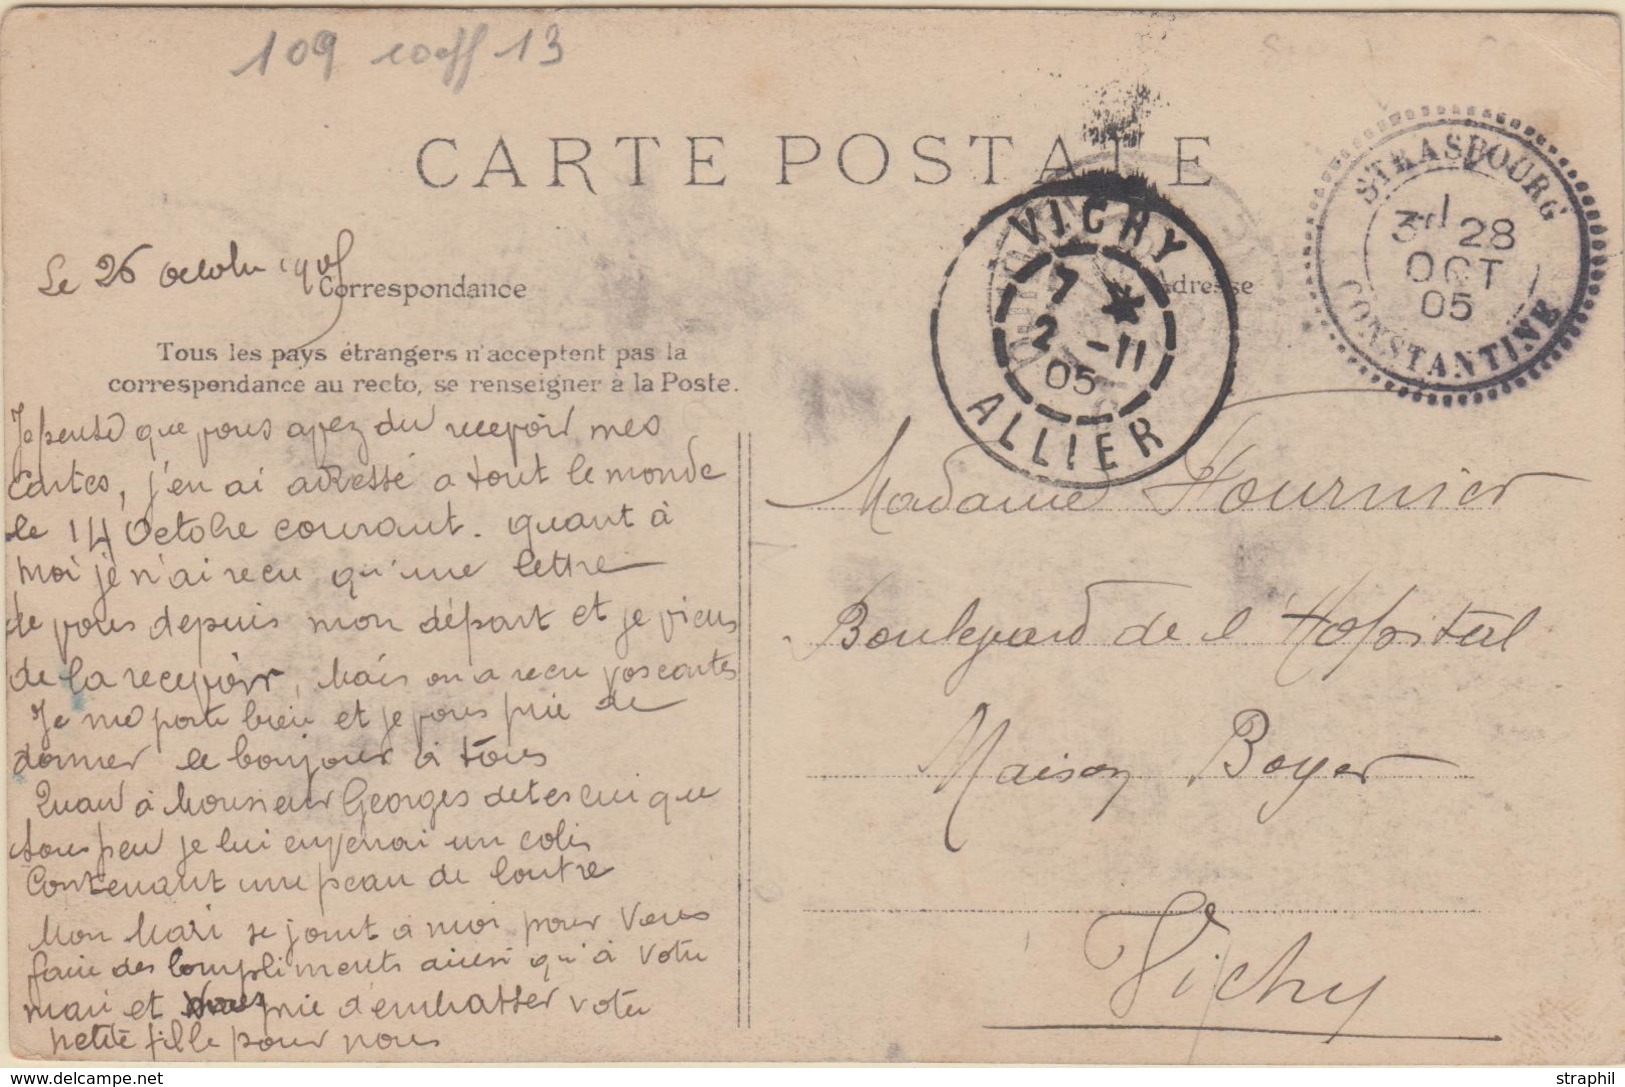 109 coeff 13
CARTE POSTALE
STRASBOURG
3e 28
OCT
05
CONSTANTINE
VICHY
7 *
2 -11
05
ALLIER
Le 26 octobre 1905
Correspondance
Adresse
Tous les pays étrangers n'acceptent pas la
correspondance au recto, se renseigner à la Poste.
Je pense que vous avez du recevoir mes
Cartes, j'en ai adressé a tout le monde
le 14 Octobre courant. quant à
moi je n'ai recu qu'une lettre
de vous depuis mon départ et je viens
de la recevoir, Mais on a recu vos cartes
Je me porte bien et je vous prie de
donner le bonjour à tous
Quand à Monsieur Georges dites lui que
sous peu je lui enverrai un colis
Contenant une peau de loutre
Mon Mari se joint a moi pour Vous
faire des Compliments ainsi qu'à Votre
mari et vous prie d'embrasser votre
petite fille pour nous
Madame Fournier
Boulevard de l'Hopital
Maison Boyer
Vichy
straphil